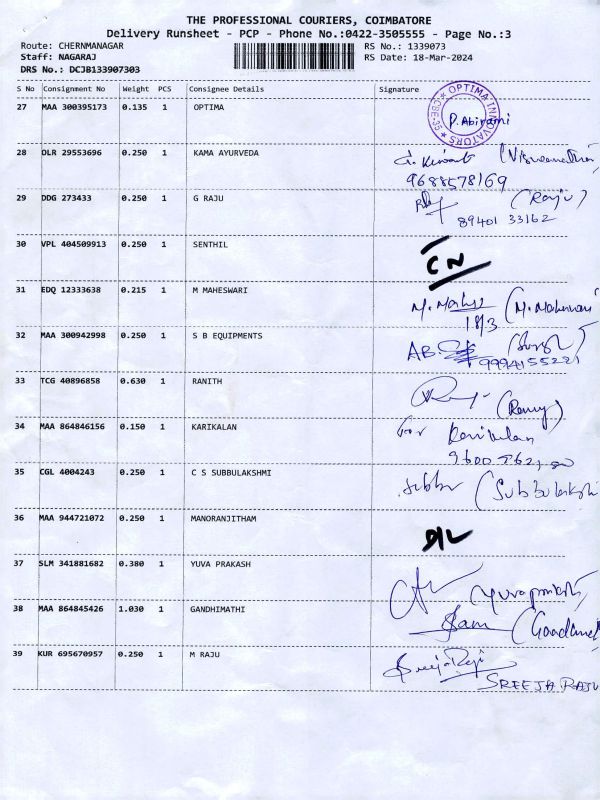 THE PROFESSIONAL COURIERS, COIMBATORE
Delivery Runsheet - PCP - Phone No.:0422-3505555 - Page No.:3
Route: CHERNMANAGAR
RS No.: 1339073
Staff: NAGARAJ
RS Date: 18-Mar-2024
DRS No.: DCJB133907303
S No Consignment No Weight PCS Consignee Details Signature
27 MAA 300395173 0.135 1 OPTIMA
OPTIMA INNOVATORS
P. Abirami
28 DLR 29553696 0.250 1 KAMA AYURVEDA
9688578169
29 DDG 273433 0.250 1 G RAJU (Raju)
89401 33162
30 VPL 404509913 0.250 1 SENTHIL
CN
31 EDQ 12333638 0.215 1 M MAHESWARI
18/3
32 MAA 300942998 0.250 1 S B EQUIPMENTS
AB
9994155221
33 TCG 40896858 0.630 1 RANITH
34 MAA 864846156 0.150 1 KARIKALAN
For Karikalan
35 CGL 4004243 0.250 1 C S SUBBULAKSHMI
Subbu (Subbulakshi
36 MAA 944721072 0.250 1 MANORANJITHAM
D/L
37 SLM 341881682 0.380 1 YUVA PRAKASH
Yuvaprakash
38 MAA 864845426 1.030 1 GANDHIMATHI
39 KUR 695670957 0.250 1 M RAJU
SREEJA RAJU